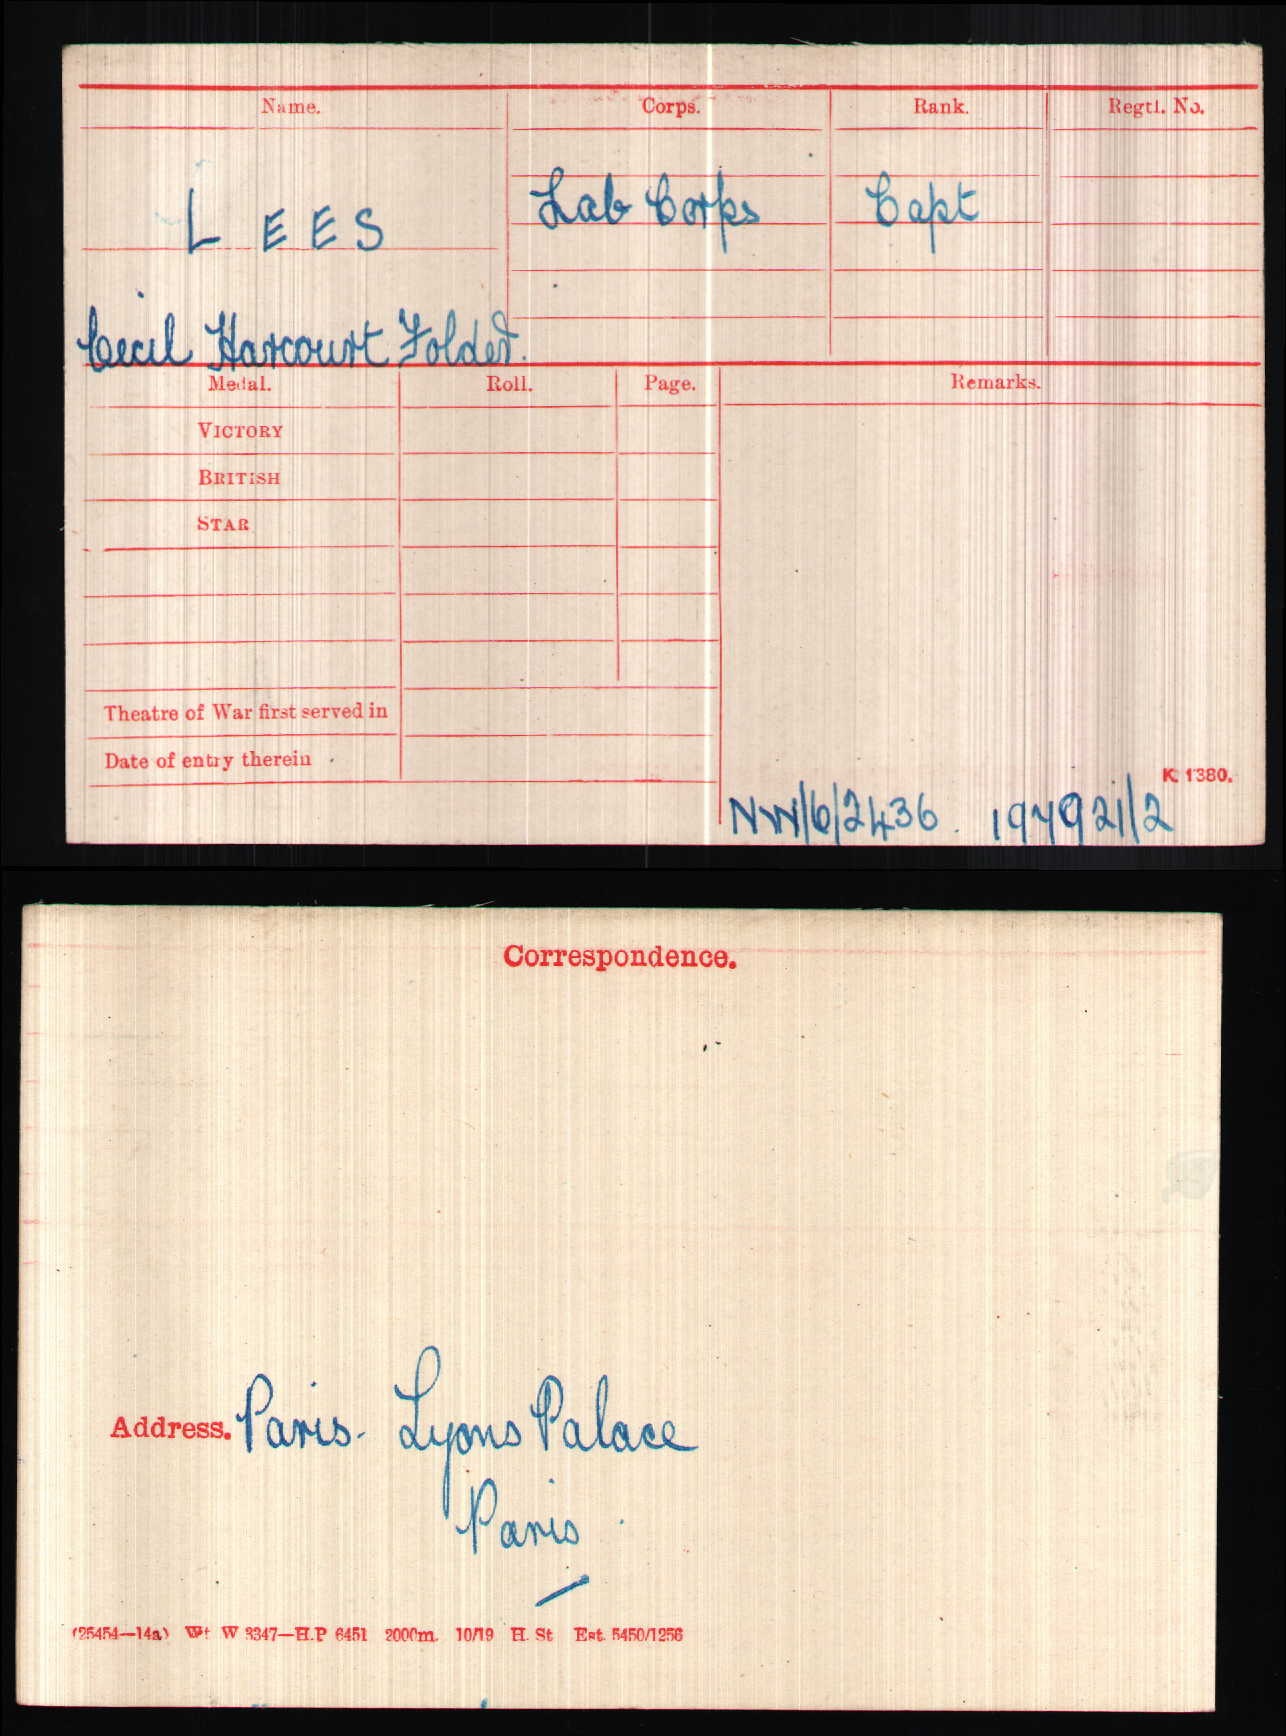 Name. Corps. Rank. Regtl. No.
LEES Lab Corps Capt
Cecil Harcourt Folder.
Medal. Roll. Page. Remarks.
VICTORY
BRITISH
STAR
Theatre of War first served in
Date of entry therein
K. 1380.
NW/6/2436. 197921/2
Correspondence.
Address. Paris. Lyons Palace
Paris.
(25454—14a) Wt W 3347—H.P 6451 2000m. 10/19 H. St Est. 5450/1256